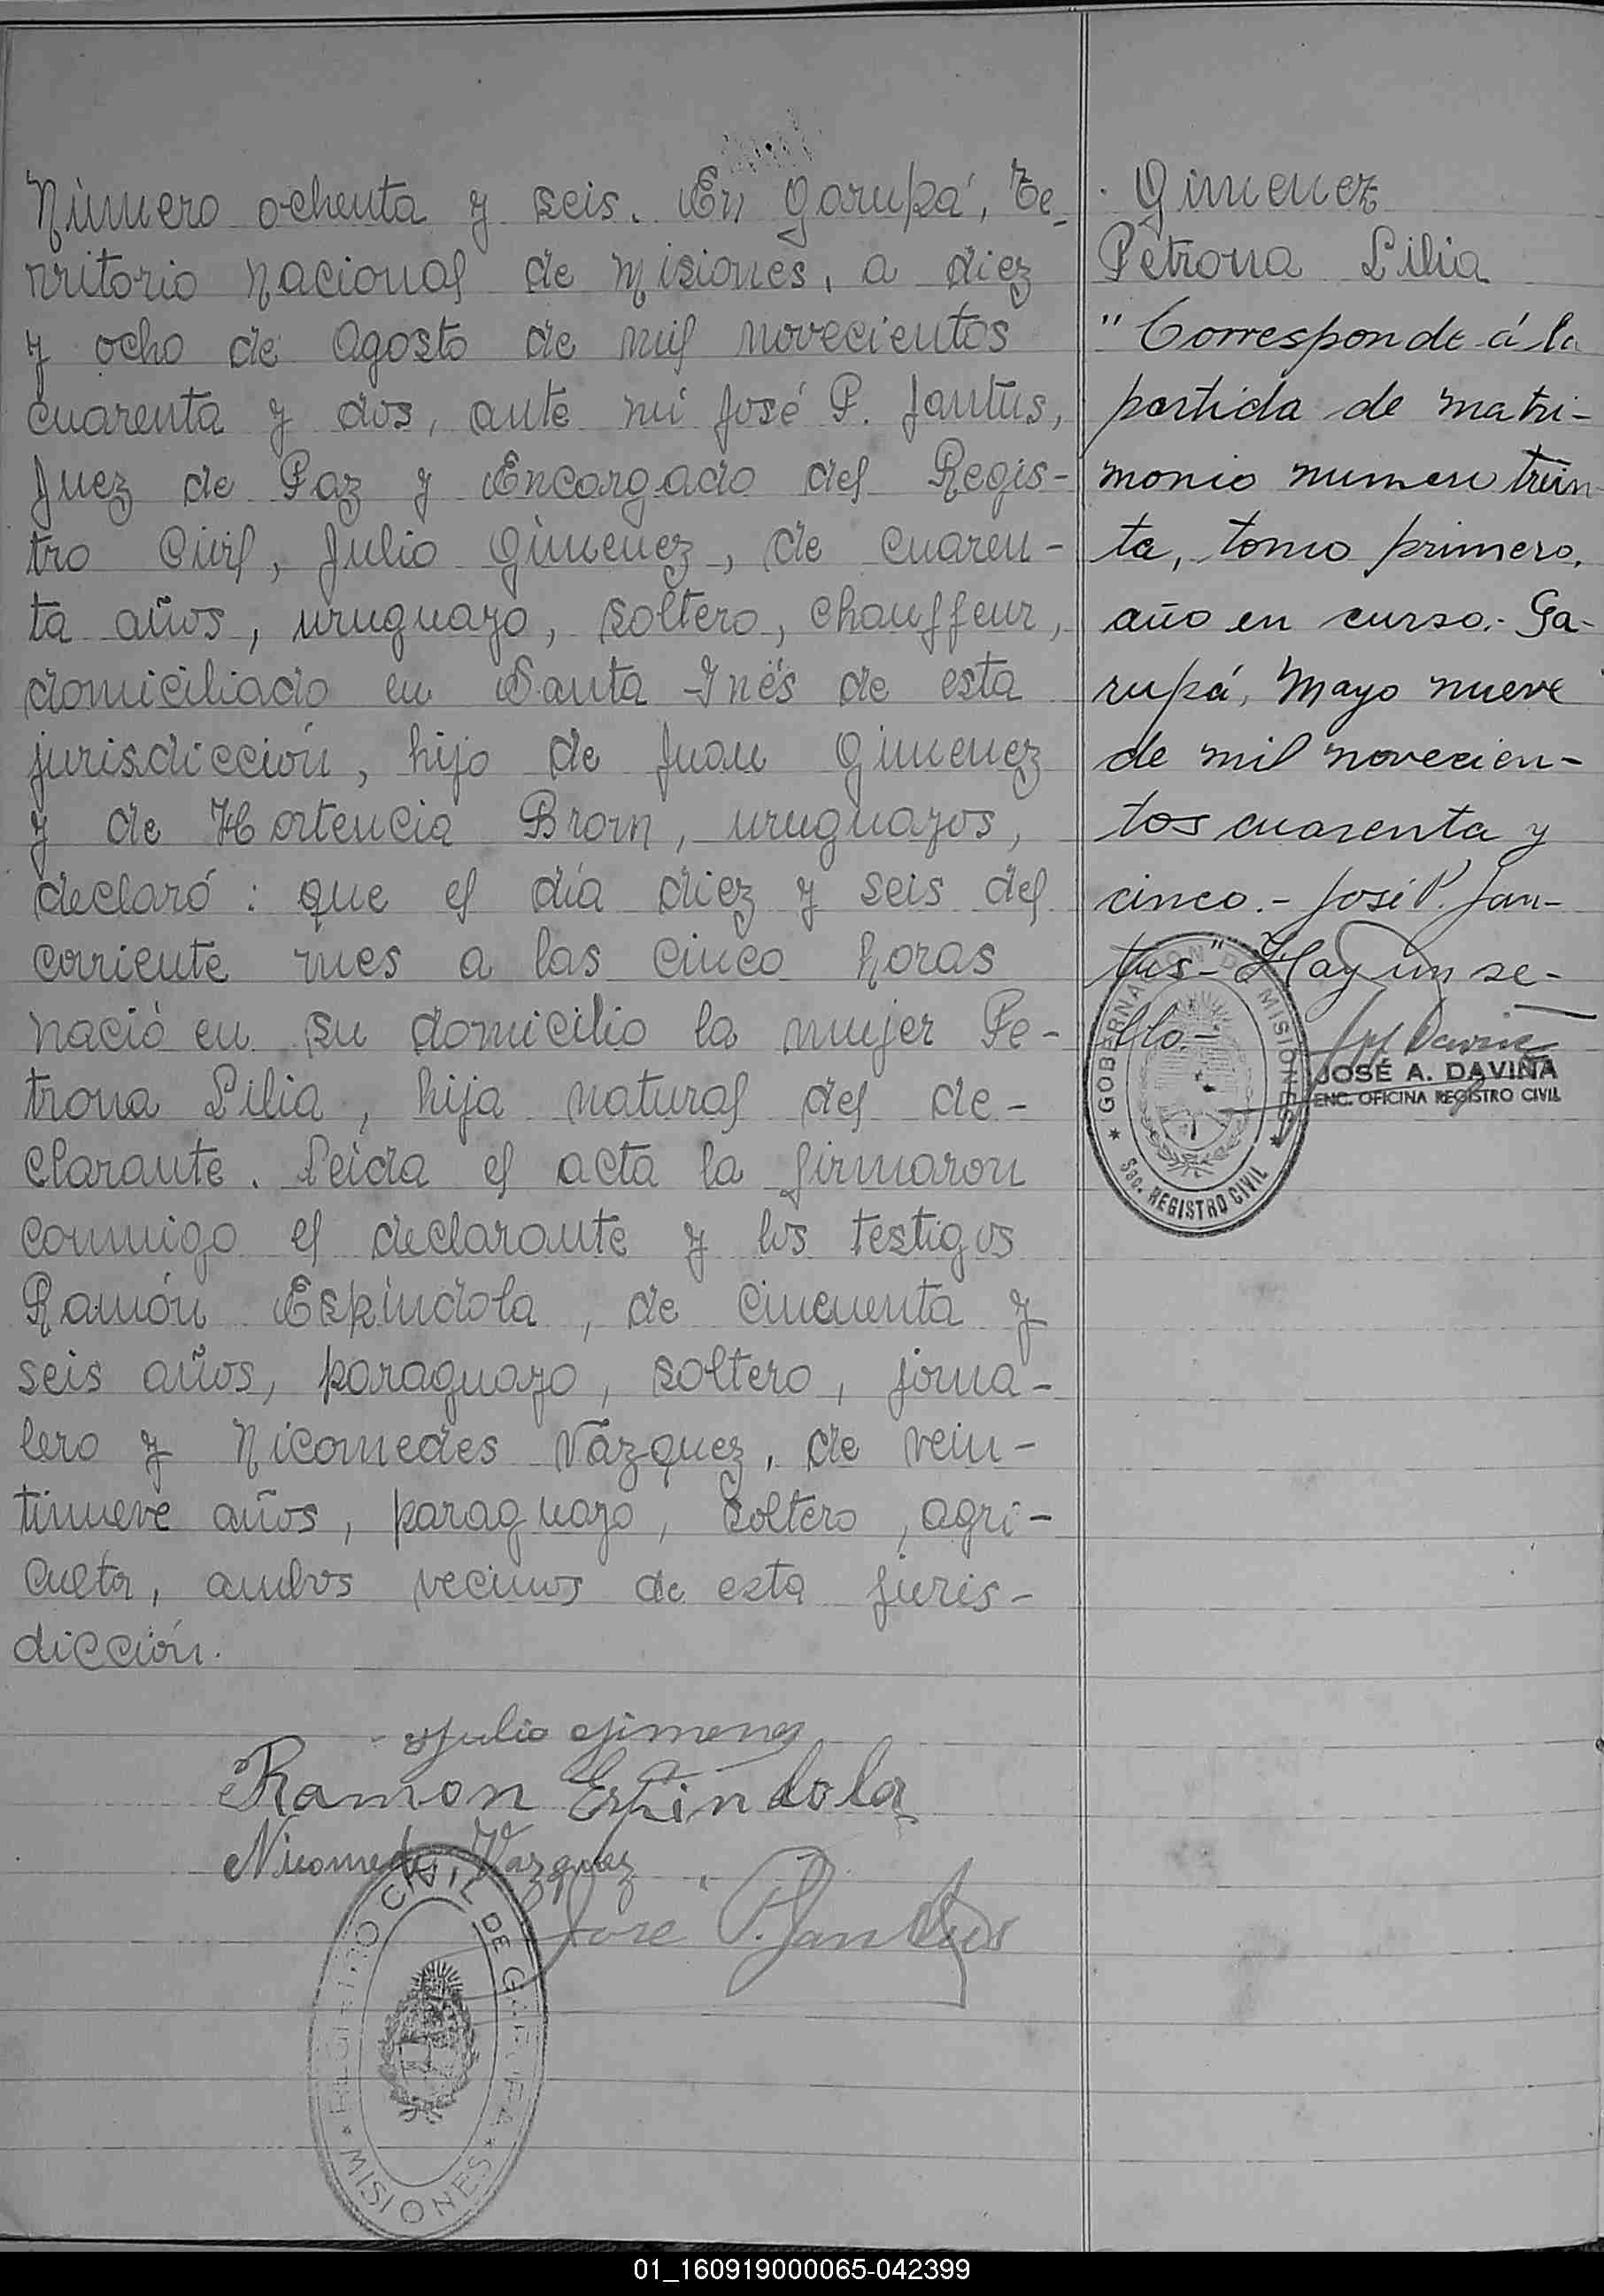 Número ochenta y seis. En Garupá, Te-
rritorio Nacional de Misiones, a diez
y ocho de Agosto de mil novecientos
cuarenta y dos, ante mi José P. Jantus,
Juez de Paz y Encargado del Regis-
tro Civil, Julio Gimenez, de cuaren-
ta años, uruguayo, soltero, chauffeur,
domiciliado en Santa Inés de esta
jurisdicción, hijo de Juan Gimenez
y de Hortencia Brown, uruguayos,
declaró: que el día diez y seis del
corriente mes a las cinco horas
nació en su domicilio la mujer Pe-
trona Lilia, hija natural del de-
clarante. Leida el acta la firmaron
conmigo el declarante y los testigos
Ramón Espíndola, de cincuenta y
seis años, paraguayo, soltero, jorna-
lero y Nicomedes Vázquez, de vein-
tinueve años, paraguayo, soltero, agri-
cultor, ambos vecinos de esta juris-
dicción.
Julio Gimenez
Ramon Espindola
Nicomedes Vazquez
José P. Jantus
REGISTRO CIVIL DE GARUPA
* MISIONES *
Gimenez
Petrona Lilia
"Corresponde á la
partida de matri-
monio numero trein-
ta, tomo primero,
año en curso.- Ga-
rupá, Mayo nueve
de mil novecien-
tos cuarenta y
cinco.- José P. Jan-
tus-" Hay un se-
llo.-
GOBERNACION DE MISIONES
Sec. REGISTRO CIVIL
JOSÉ A. DAVIÑA
ENC. OFICINA REGISTRO CIVIL
01_160919000065-042399